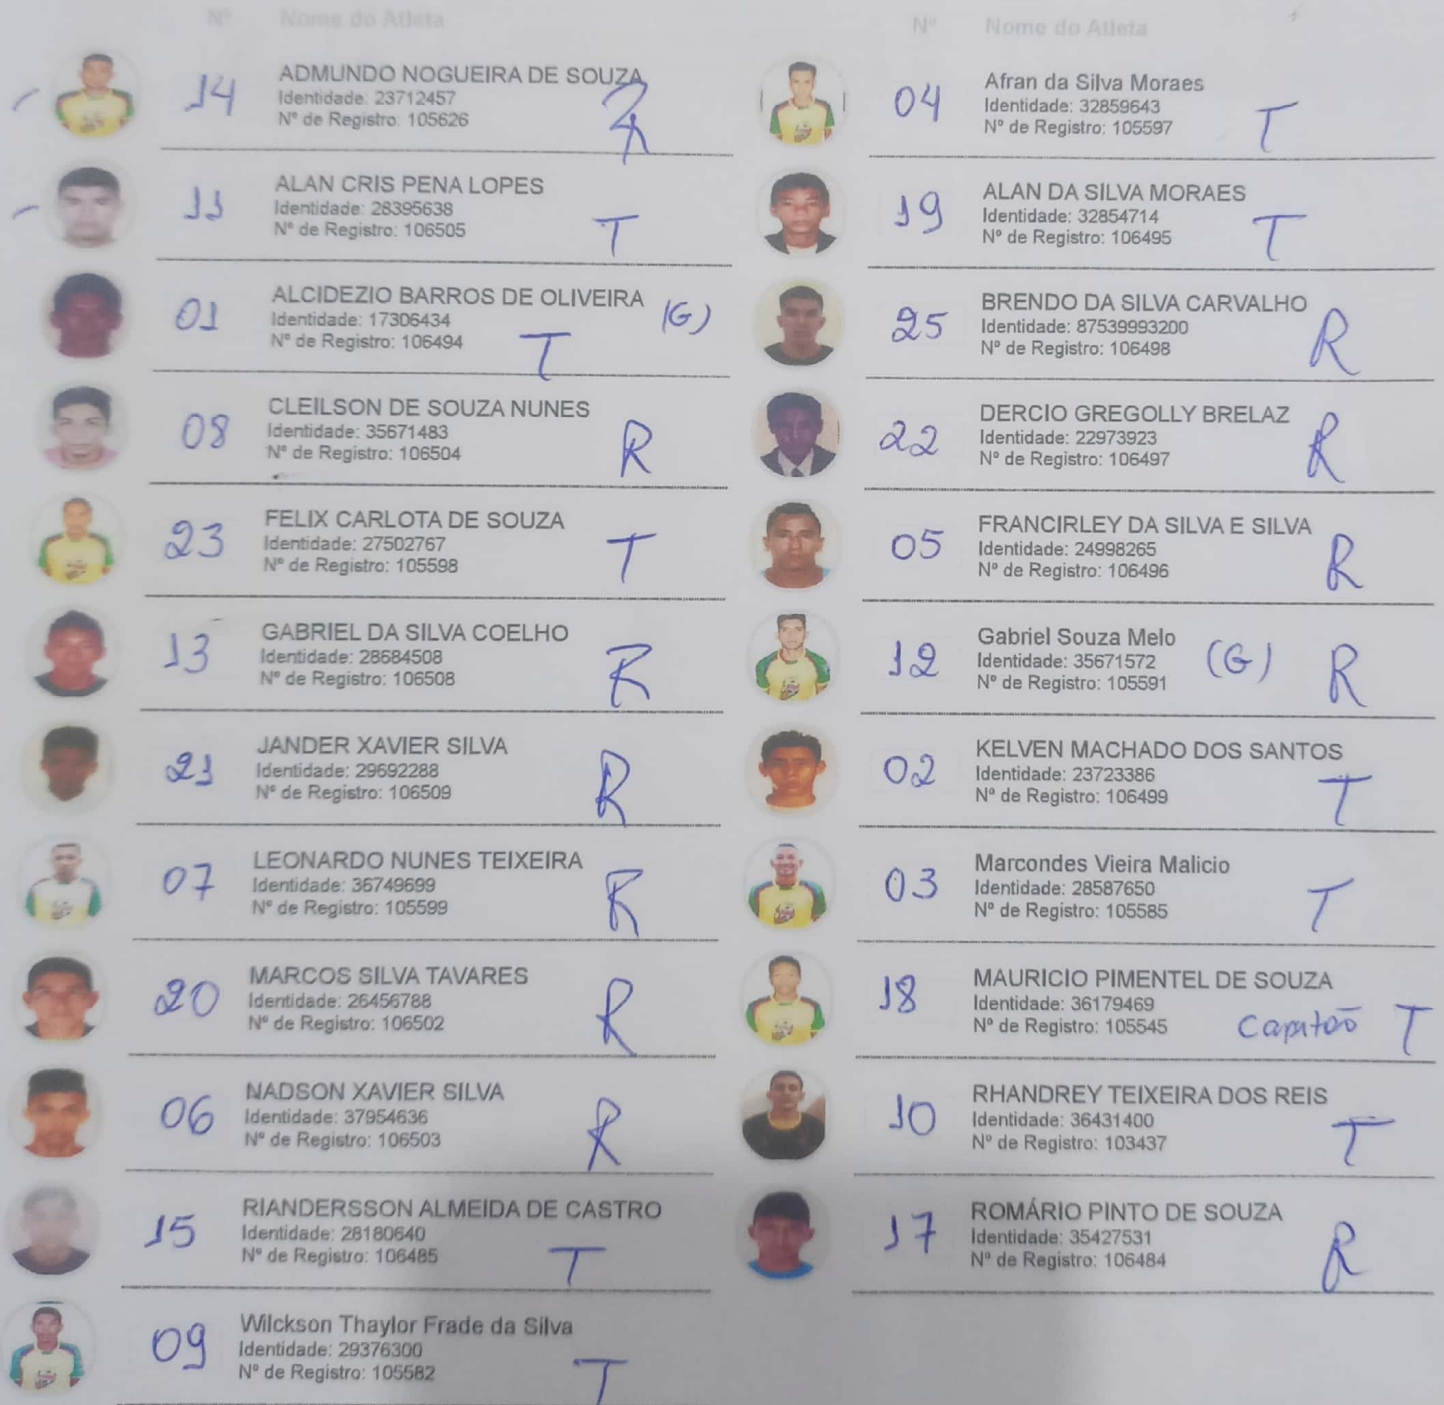 Nº Nome do Atleta
14 ADMUNDO NOGUEIRA DE SOUZA
Identidade: 23712457
Nº de Registro: 105626 R
11 ALAN CRIS PENA LOPES
Identidade: 28395638
Nº de Registro: 106505 T
01 ALCIDEZIO BARROS DE OLIVEIRA (G)
Identidade: 17306434
Nº de Registro: 106494 T
08 CLEILSON DE SOUZA NUNES
Identidade: 35671483
Nº de Registro: 106504 R
23 FELIX CARLOTA DE SOUZA
Identidade: 27502767
Nº de Registro: 105598 T
13 GABRIEL DA SILVA COELHO
Identidade: 28684508
Nº de Registro: 106508 R
21 JANDER XAVIER SILVA
Identidade: 29692288
Nº de Registro: 106509 R
07 LEONARDO NUNES TEIXEIRA
Identidade: 36749699
Nº de Registro: 105599 R
20 MARCOS SILVA TAVARES
Identidade: 26456788
Nº de Registro: 106502 R
06 NADSON XAVIER SILVA
Identidade: 37954636
Nº de Registro: 106503 R
15 RIANDERSSON ALMEIDA DE CASTRO
Identidade: 28180640
Nº de Registro: 106485 T
09 Wilckson Thaylor Frade da Silva
Identidade: 29376300
Nº de Registro: 105582 T
Nº Nome do Atleta
04 Afran da Silva Moraes
Identidade: 32859643
Nº de Registro: 105597 T
19 ALAN DA SILVA MORAES
Identidade: 32854714
Nº de Registro: 106495 T
25 BRENDO DA SILVA CARVALHO
Identidade: 87539993200
Nº de Registro: 106498 R
22 DERCIO GREGOLLY BRELAZ
Identidade: 22973923
Nº de Registro: 106497 R
05 FRANCIRLEY DA SILVA E SILVA
Identidade: 24998265
Nº de Registro: 106496 R
12 Gabriel Souza Melo
Identidade: 35671572 (G) R
Nº de Registro: 105591
02 KELVEN MACHADO DOS SANTOS
Identidade: 23723386
Nº de Registro: 106499 T
03 Marcondes Vieira Malicio
Identidade: 28587650
Nº de Registro: 105585 T
18 MAURICIO PIMENTEL DE SOUZA
Identidade: 36179469
Nº de Registro: 105545 Capitão T
10 RHANDREY TEIXEIRA DOS REIS
Identidade: 36431400
Nº de Registro: 103437 T
17 ROMÁRIO PINTO DE SOUZA
Identidade: 35427531
Nº de Registro: 106484 R